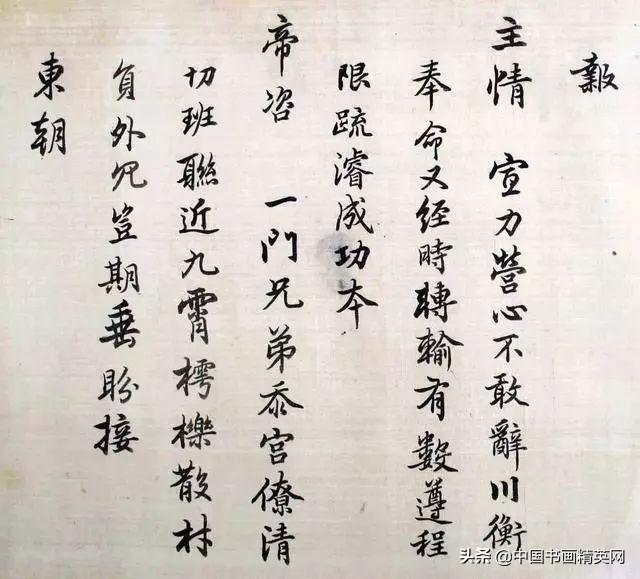 報
主情 宣力營心不敢辭川衡
奉命又經時轉輸有數遵程
限疏濬成功本
帝咨 一門兄弟忝宮僚清
切班聯近九霄樗櫟散材
員外豈期垂盼接
東朝
头条 @中国书画精英网